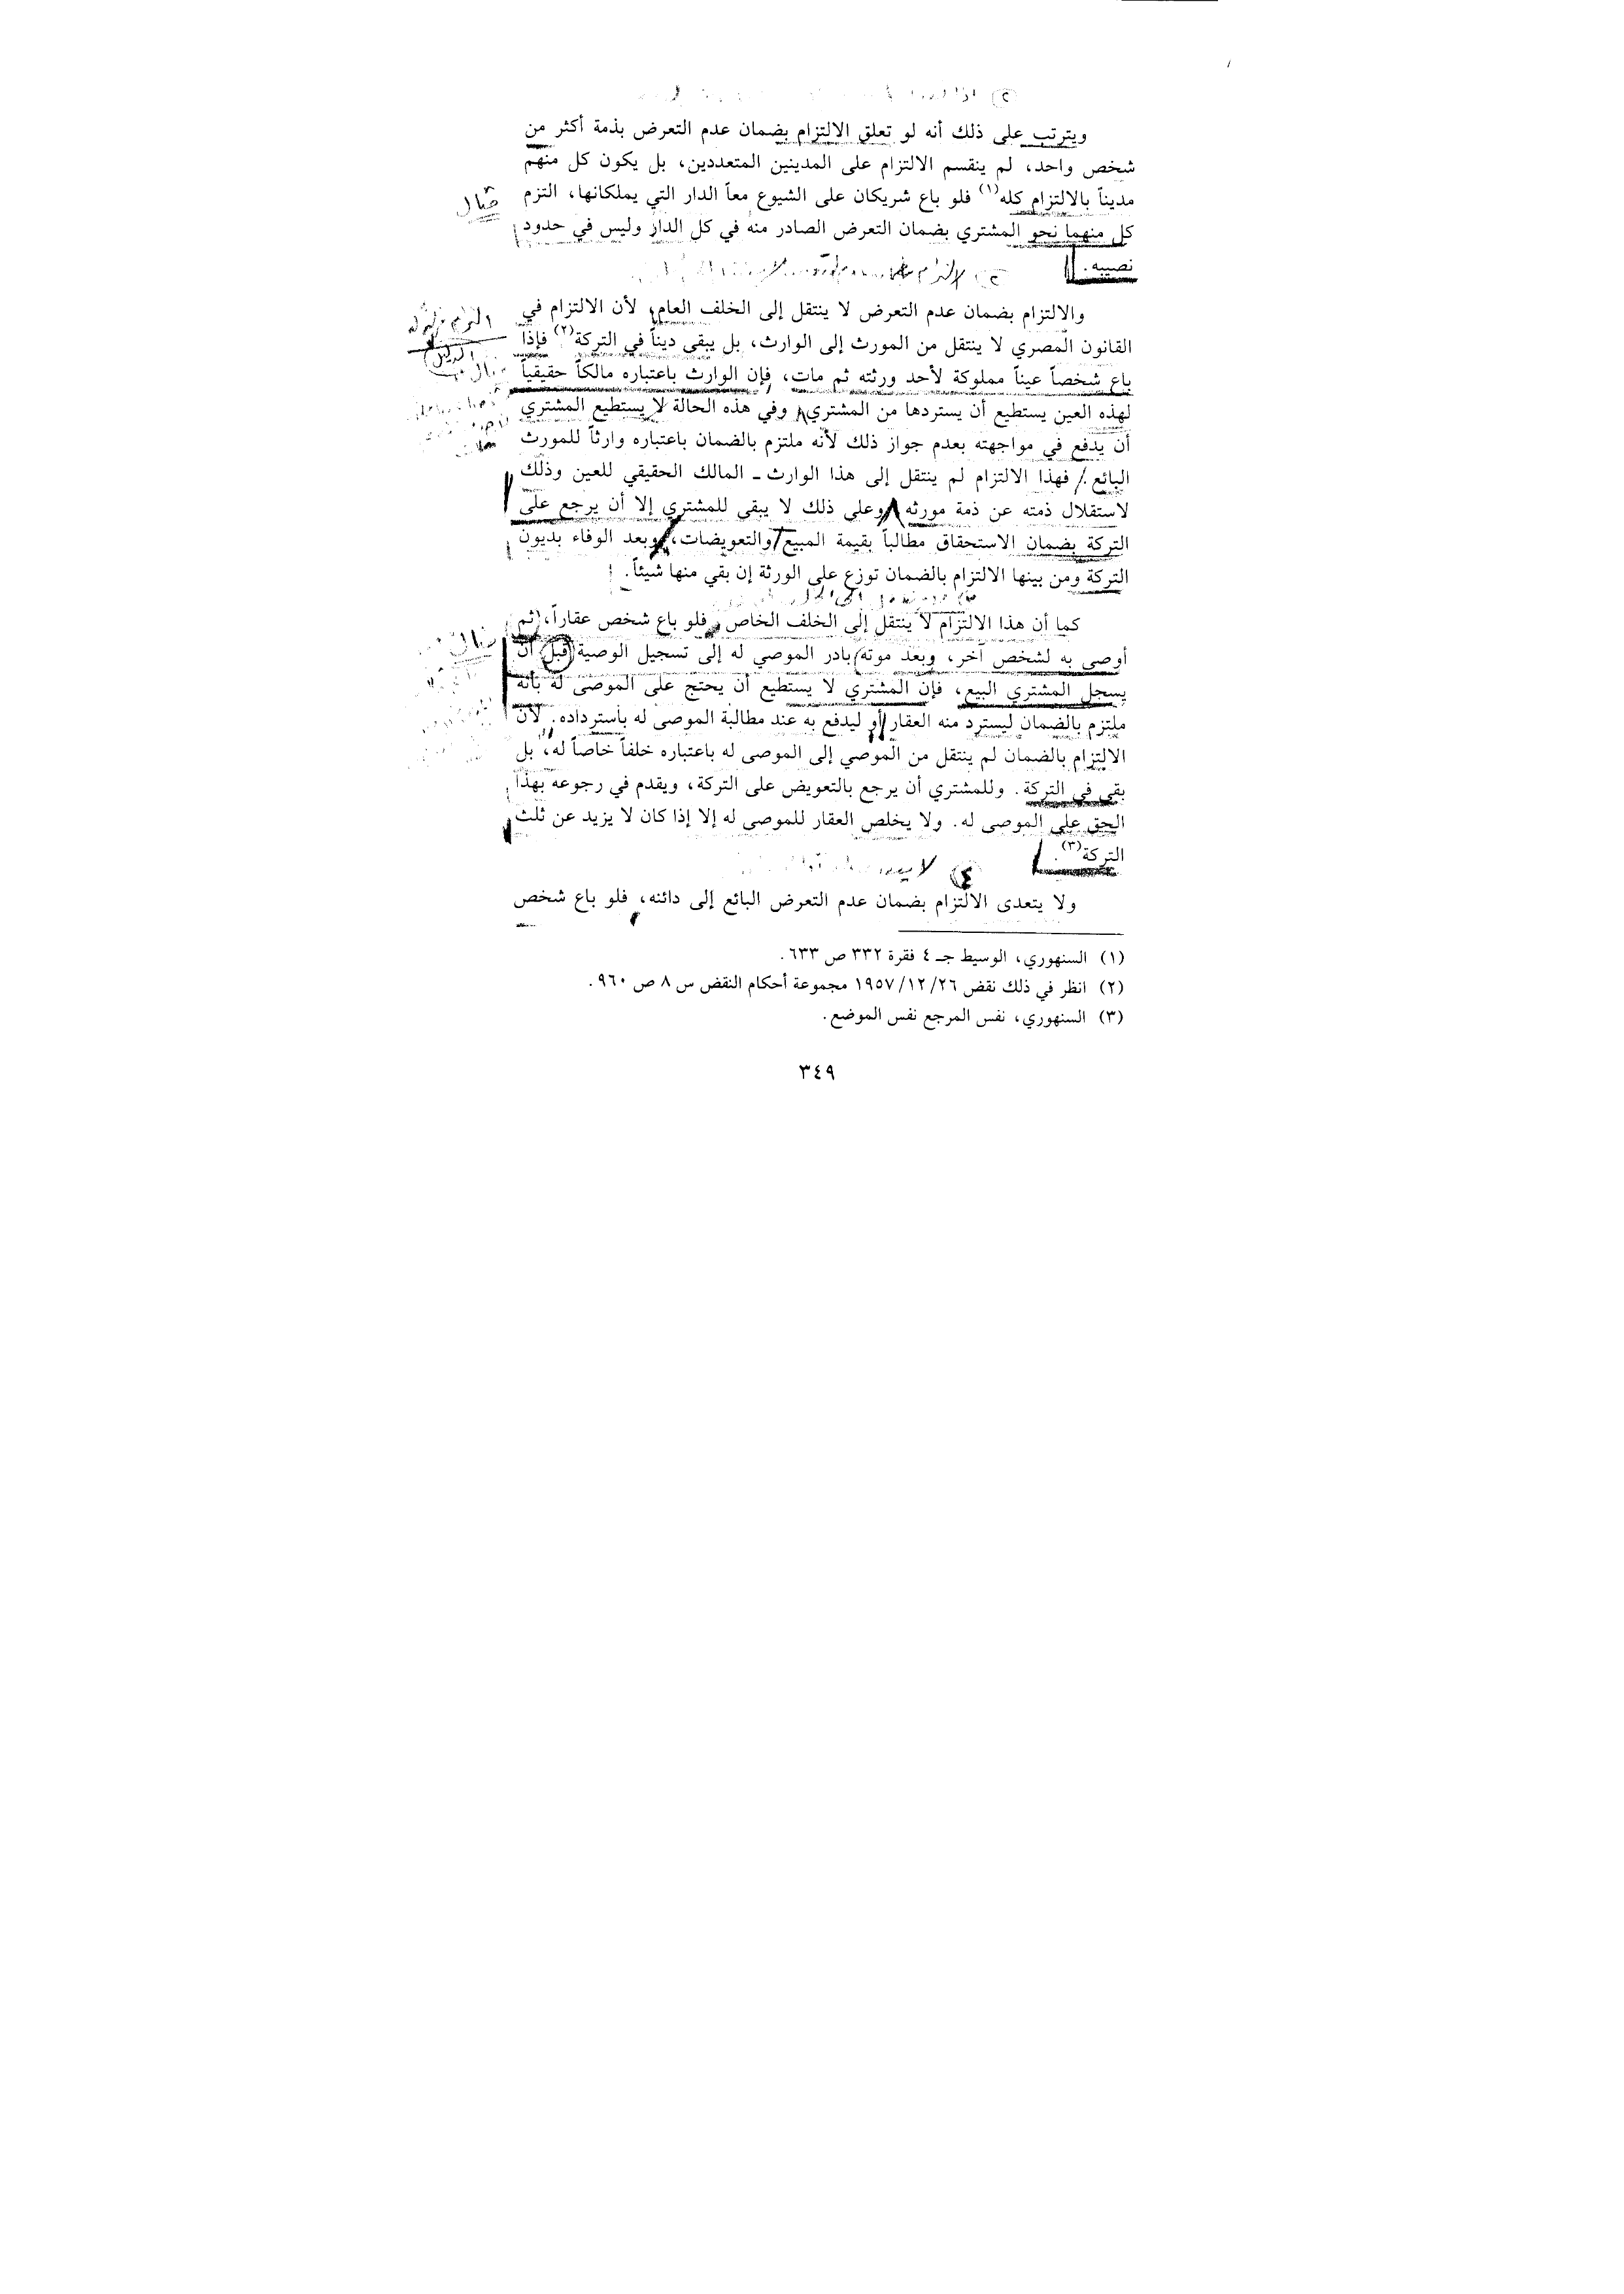 ويترتب على ذلك أنه لو تعلق الالتزام بضمان عدم التعرض بذمة أكثر من
شخص واحد، لم ينقسم الالتزام على المدينين المتعددين، بل يكون كل منهم
مديناً بالالتزام كله(١) فلو باع شريكان على الشيوع معاً الدار التي يملكانها، التزم
مثال
كل منهما نحو المشتري بضمان التعرض الصادر منه في كل الدار وليس في حدود
نصيبه.
والالتزام بضمان عدم التعرض لا ينتقل إلى الخلف العام، لأن الالتزام في
القانون المصري لا ينتقل من المورث إلى الوارث، بل يبقى ديناً في التركة(٢) فإذا
باع شخصاً عيناً مملوكة لأحد ورثته ثم مات، فإن الوارث باعتباره مالكاً حقيقياً
لهذه العين يستطيع أن يستردها من المشتري، وفي هذه الحالة لا يستطيع المشتري
أن يدفع في مواجهته بعدم جواز ذلك لأنه ملتزم بالضمان باعتباره وارثاً للمورث
البائع. فهذا الالتزام لم ينتقل إلى هذا الوارث ـ المالك الحقيقي للعين وذلك
لاستقلال ذمته عن ذمة مورثه وعلى ذلك لا يبقى للمشتري إلا أن يرجع على
التركة بضمان الاستحقاق مطالباً بقيمة المبيع والتعويضات، وبعد الوفاء بديون
التركة ومن بينها الالتزام بالضمان توزع على الورثة إن بقي منها شيئاً.
كما أن هذا الالتزام لا ينتقل إلى الخلف الخاص، فلو باع شخص عقاراً، ثم
مثال
أوصى به لشخص آخر، وبعد موته بادر الموصي له إلى تسجيل الوصية قبل أن
يسجل المشتري البيع، فإن المشتري لا يستطيع أن يحتج على الموصى له بأنه
ملتزم بالضمان ليسترد منه العقار أو ليدفع به عند مطالبة الموصى له بأسترداده. لأن
الالتزام بالضمان لم ينتقل من الموصي إلى الموصى له باعتباره خلفاً خاصاً له، بل
بقي في التركة. وللمشتري أن يرجع بالتعويض على التركة، ويقدم في رجوعه بهذا
الحق على الموصى له. ولا يخلص العقار للموصى له إلا إذا كان لا يزيد عن ثلث
التركة(٣).
ولا يتعدى الالتزام بضمان عدم التعرض البائع إلى دائنه، فلو باع شخص
(١) السنهوري، الوسيط جـ ٤ فقرة ٣٣٢ ص ٦٣٣.
(٢) انظر في ذلك نقض ١٩٥٧/١٢/٢٦ مجموعة أحكام النقض س ٨ ص ٩٦٠.
(٣) السنهوري، نفس المرجع نفس الموضع.
٣٤٩